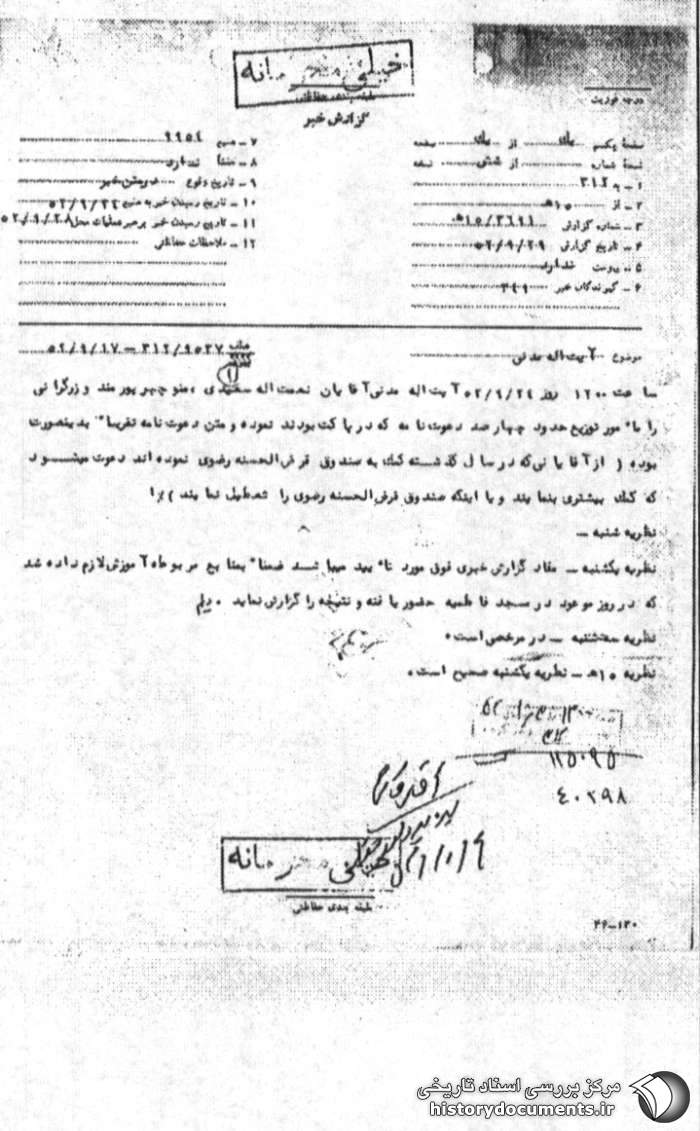 خیلی محرمانه
طبقه بندی حفاظتی
گزارش خبر
درجه فوریت
صفحه یکم یک از یک صفحه
نسخه شماره از شش نسخه
۱ ـ به ۳۱۲
۲ ـ از ۱۰هـ
۳ ـ شماره گزارش ۳۶۹۱/۱۵هـ
۴ ـ تاریخ گزارش ۵۲/۹/۲۹
۵ ـ پیوست ندارد
۶ ـ گیرندگان خبر ۳۴۱
۷ ـ منبع ۹۹۵۴
۸ ـ منشأ ندارد
۹ ـ تاریخ وقوع درمتن خبر
۱۰ ـ تاریخ رسیدن خبر به منبع ۵۲/۹/۲۴
۱۱ ـ تاریخ رسیدن خبر به رهبر عملیات محل ۵۲/۹/۲۸
۱۲ ـ ملاحظات حفاظتی
موضوع آیت اله مدنی
۳۱۲/۹۵۲۷ – ۵۲/۹/۱۷
ساعت ۱۲۰۰ روز ۵۲/۹/۲۴ آیت اله مدنی آقایان نعمت اله سعیدی ، منوچهر پورمند و زرگرانی
را مأمور توزیع حدود چهارصد دعوت نامه که در پاکت بودند نموده و متن دعوت نامه تقریباً بدینصورت
بوده ( از آقایانی که در سال گذشته کمک به صندوق قرض الحسنه رضوی نموده اند دعوت میشود
که کمک بیشتری بنمایند و یا اینکه صندوق قرض الحسنه رضوی را تعطیل نمایند )
نظریه شنبه ـ
نظریه یکشنبه ـ مفاد گزارش خبری فوق مورد تأیید میباشد ضمناً بمنابع مربوطه آموزش لازم داده شد
که در روز موعود در مسجد فاطمیه حضور یافته و نتیجه را گزارش نماید . دیلم
نظریه سه شنبه ـ در مرخصی است .
نظریه ۱۰هـ ـ نظریه یکشنبه صحیح است .
۱۱۵۰۹۵
۴۰۲۹۸
خیلی محرمانه
طبقه بندی حفاظتی
۴۶-۱۲۰
مرکز بررسی اسناد تاریخی
historydocuments.ir